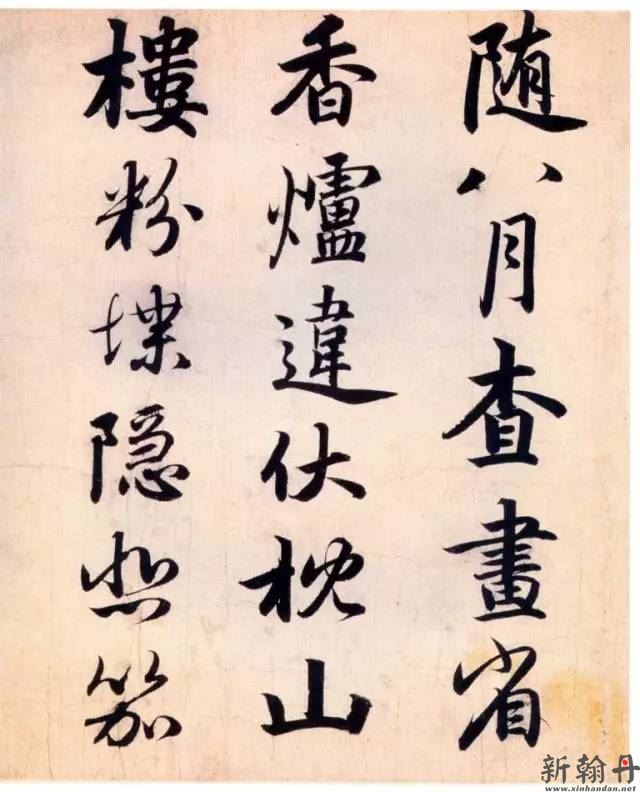 随八月查畫省
香爐違伏枕山
樓粉堞隐悲笳
新翰丹
www.xinhandan.net